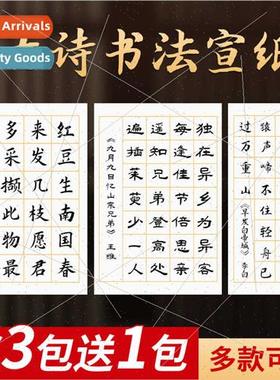 Arrivals
ity Goods
古诗书法宣纸
红豆生南国春
来发几枝愿君
多采撷此物最
独在异乡为异客
每逢佳节倍思亲
遥知兄弟登高处
遍插茱萸少一人
《九月九日忆山东兄弟》 王维
猿声啼不住轻舟已
过万重山《早发白帝城》 李白
3包送1包 多款可